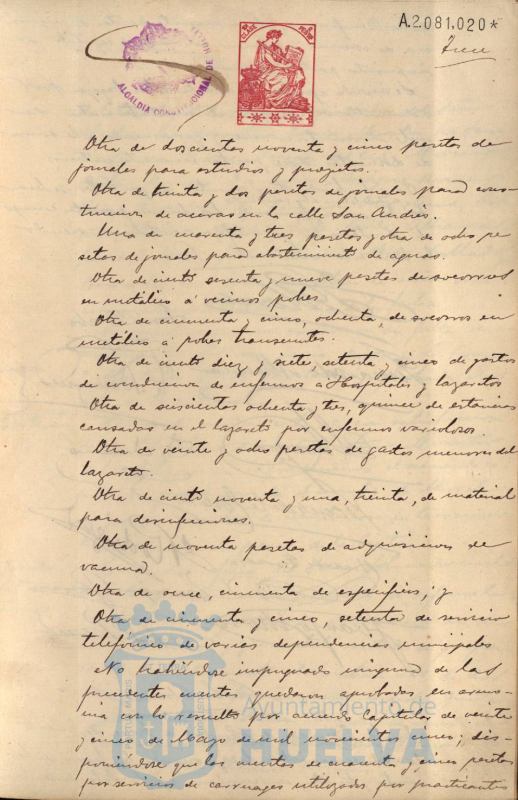 A.2.081,020*
Trece
ALCALDIA CONSTITUCIONAL DE
Otra de doscientas noventa y cinco pesetas de
jornales para estudios y proyectos.
Otra de treinta y dos pesetas de jornales para cons-
trucion de aceras en la calle San Andrés.
Una de cuarenta y tres pesetas y otra de ocho pe
setas de jornales para abastecimiento de aguas.
Otra de ciento sesenta y nueve pesetas de socorros
en metálico á vecinos pobres
Otra de cincuenta y cinco, ochenta, de socorros en
metálico á pobres transeuntes.
Otra de ciento diez y siete, setenta y cinco de gastos
de conduccion de enfermos á Hospitales y lazaretos
Otra de seiscientas ochenta y tres, quince de estancias
causadas en el lazareto por enfermos variolosos.
Otra de veinte y ocho pesetas de gastos menores del
lazareto.
Otra de ciento noventa y una, treinta, de material
para desinfecciones.
Otra de noventa pesetas de adquisicion de
vacuna.
Otra de once, cincuenta de específicos; y
Otra de cincuenta y cinco, setenta de servicio
telefónico de varias dependencias municipales
No habiéndose impugnado ninguna de las
precedentes cuentas quedaron aprobadas, en armo-
nia con lo resuelto por acuerdo Capitular de veinte
y cinco de Mayo de mil novecientos cinco; dis-
poniéndose que las cuentas de cuarenta y cinco pesetas
por servicios de carruages utilizados por practicantes
Ayuntamiento de
HUELVA